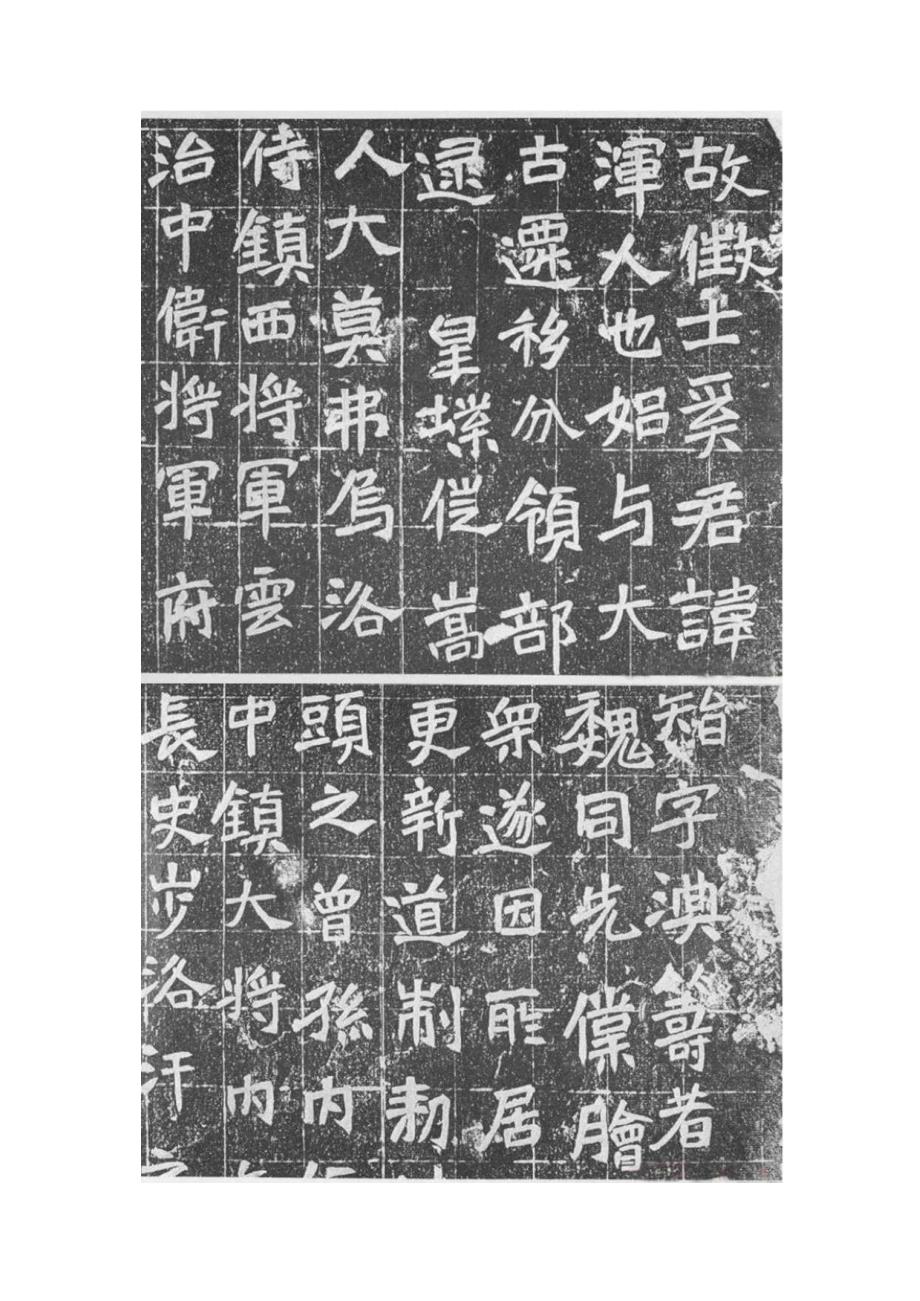 故徵士奚君諱
渾人也始与大
古遷移分領部
逮 皇業徙嵩
人大莫弗烏洛
侍鎮西將軍雲
治中衛將軍府
智字淟籌者
魏同先僕膾
衆遂因所居
更新道制敕
頭之曾孫内
中鎮大將内
長史步洛汗